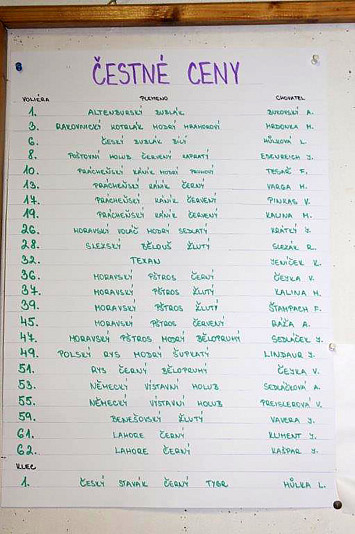 ČESTNÉ CENY
VOLIÉRA PLEMENO CHOVATEL
1. ALTENBURSKÝ BUBLÁK BUKOVSKÝ A.
3. RAKOVNICKÝ KOTRLÁK MODRÝ MRAMOROVÝ MRDONKA M.
6. ČESKÝ BUBLÁK BÍLÝ HŮLKOVÁ L.
8. POŠTOVNÍ HOLUB ČERVENÝ KAPRATÝ EDENREICH J.
10. PRÁCHEŇSKÝ KÁNÍK MODRÝ PRUHOVÝ TESAŘ F.
13. PRÁCHEŇSKÝ KÁNÍK ČERNÝ VARGA M.
17. PRÁCHEŇSKÝ KÁNÍK ČERVENÝ PINKAS V.
19. PRÁCHEŇSKÝ KÁNÍK ČERVENÝ KALINA M.
26. MORAVSKÝ VOLÁČ MODRÝ SEDLATÝ KRÁTKÝ J.
28. SLEZSKÝ BĚLOUŠ ŽLUTÝ SLEZÁK R.
32. TEXAN JENÍČEK K.
36. MORAVSKÝ PŠTROS ČERNÝ ČEJKA V.
37. MORAVSKÝ PŠTROS ŽLUTÝ KALINA M.
39. MORAVSKÝ PŠTROS ŽLUTÝ ŠTAMPACH F.
45. MORAVSKÝ PŠTROS ČERVENÝ RÁŽA A.
47. MORAVSKÝ PŠTROS MODRÝ BĚLOPRUHÝ SEDLÁČEK J.
49. POLSKÝ RYS MODRÝ ŠUPKATÝ LINDAUR J.
51. RYS ČERNÝ BĚLOPRUHÝ ČEJKA V.
53. NĚMECKÝ VÝSTAVNÍ HOLUB SEDLÁČKOVÁ A.
55. NĚMECKÝ VÝSTAVNÍ HOLUB PREISLEROVÁ V.
59. BENEŠOVSKÝ ŽLUTÝ VAVERA J.
61. LAHORE ČERNÝ KLIMENT J.
62. LAHORE ČERNÝ KAŠPAR J.
KLEC
1. ČESKÝ STAVÁK ČERNÝ TYGR HŮLKA L.